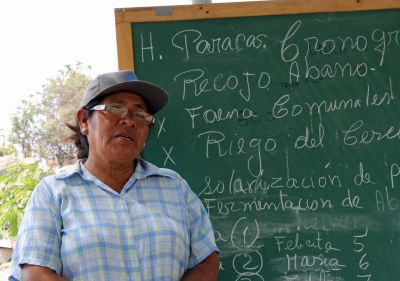 H. Paracas. Cronogr
Recojo Abono.
x Faena Comunales
x Riego del Cerc
solarización de p
Fermentación de Ab
(1) Febata 5
(2) María 6